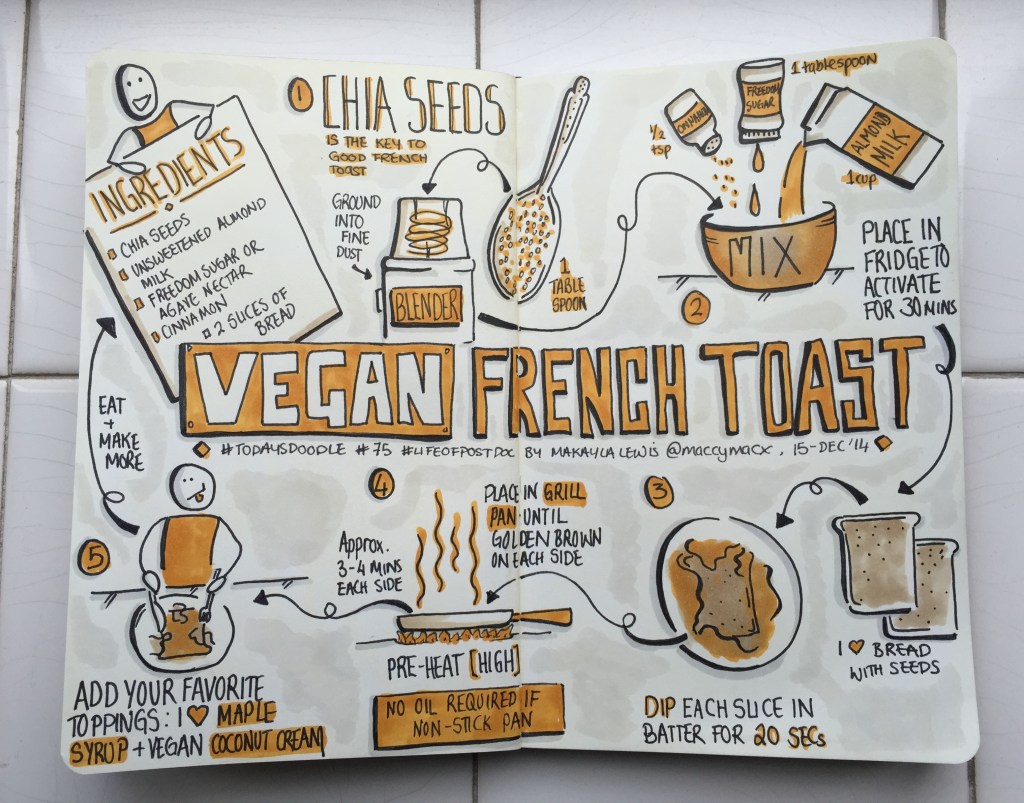 INGREDIENTS
CHIA SEEDS
UNSWEETENED ALMOND
MILK
FREEDOM SUGAR OR
AGAVE NECTAR
CINNAMON
2 SLICES OF
BREAD
1
CHIA SEEDS
IS THE KEY TO
GOOD FRENCH
TOAST
GROUND
INTO
FINE
DUST
BLENDER
1
TABLE
SPOON
1/2
tsp
CINNAMON
FREEDOM
SUGAR
1 tablespoon
ALMOND
MILK
1 cup
MIX
2
PLACE IN
FRIDGE TO
ACTIVATE
FOR 30 MINS
VEGAN FRENCH TOAST
#TODAYSDOODLE #75 #LIFEOFPOSTDOC BY MAKAYLA LEWIS @maccymacx, 15-DEC'14
3
I ♥ BREAD
WITH SEEDS
DIP EACH SLICE IN
BATTER FOR 20 SECs
4
PLACE IN GRILL
PAN UNTIL
GOLDEN BROWN
ON EACH SIDE
Approx.
3-4 MINS
EACH SIDE
PRE-HEAT [HIGH]
NO OIL REQUIRED IF
NON-STICK PAN
5
ADD YOUR FAVORITE
TOPPINGS: I ♥ MAPLE
SYRUP + VEGAN COCONUT CREAM
EAT
+
MAKE
MORE